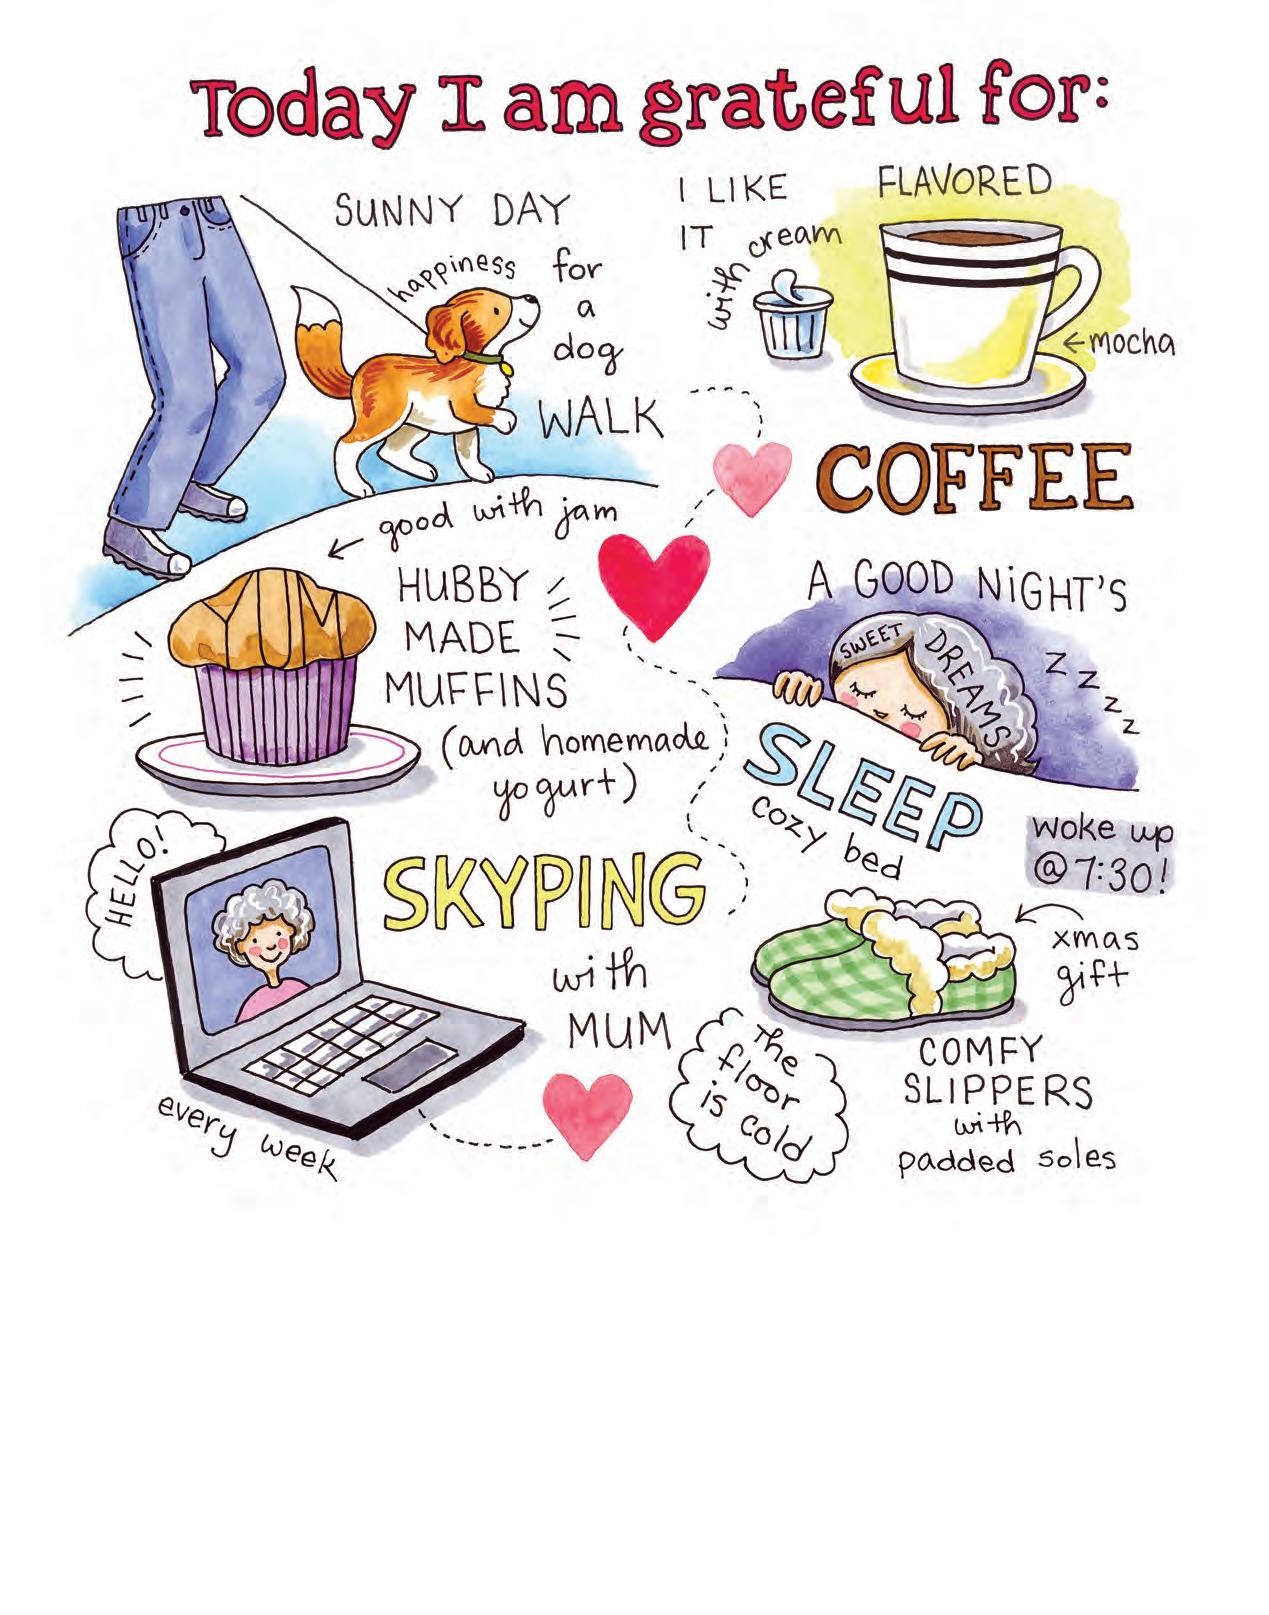 Today I am grateful for:
SUNNY DAY
happiness
for
a
dog
WALK
I LIKE
IT
with cream
FLAVORED
←mocha
COFFEE
← good with jam
YUM
HUBBY
MADE
MUFFINS
(and homemade
yogurt)
A GOOD NiGHT'S
SWEET
DREAMS
Z Z Z Z
SLEEP
cozy bed
woke up
@ 7:30!
HELLO!
SKYPING
with
MUM
every week
xmas
gift
The
floor
is cold
COMFY
SLIPPERS
with
padded soles